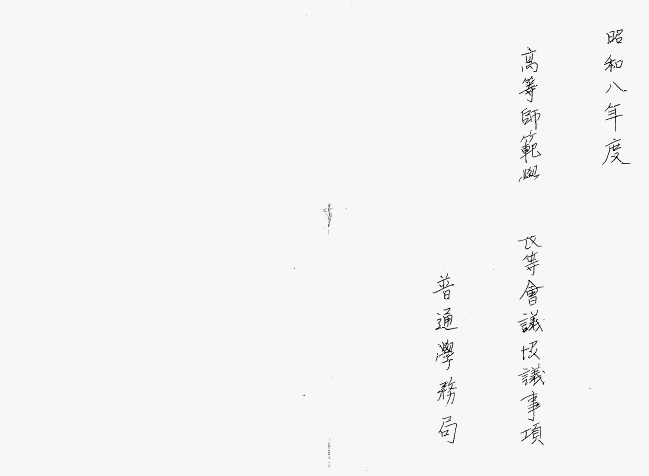 昭和八年度
高等師範 等會議 議事項
普通學務局